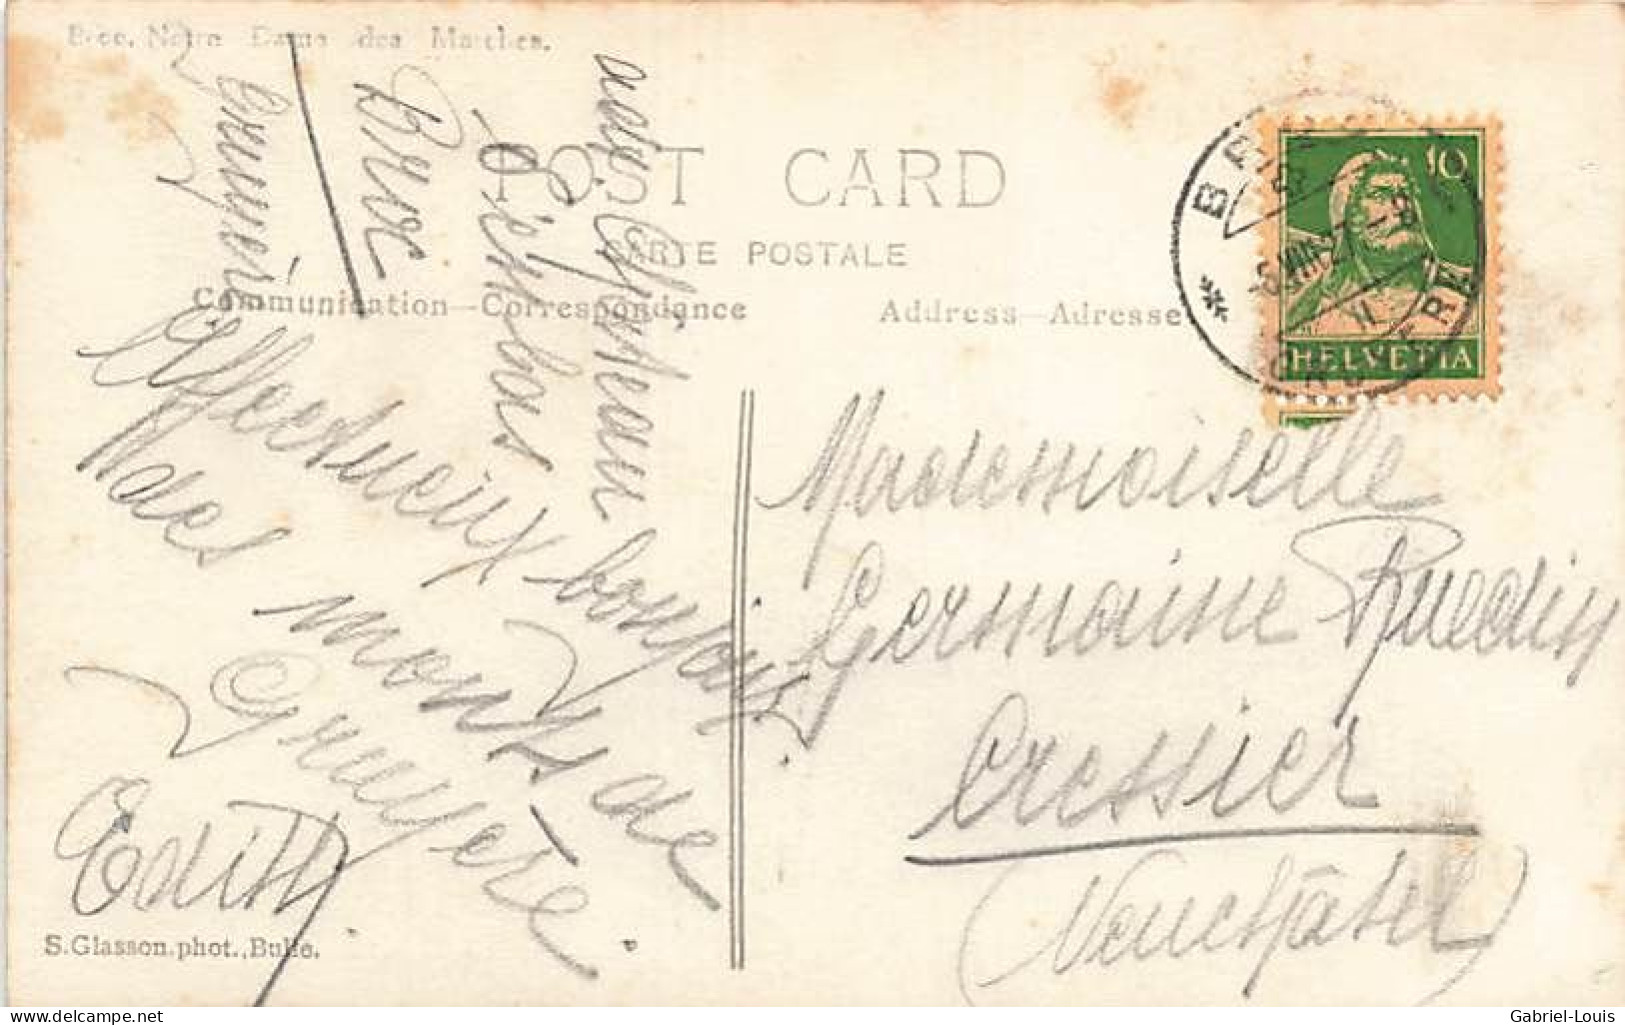 Broc. Notre Dame des Marches.
POST CARD
CARTE POSTALE
Communication—Correspondance
Address—Adresse
10
HELVETIA
Affectueux bonjours
des monts de
Gruyère.
Edith
Broc
Séchaud
au Château
Gruyère
Mademoiselle
Germaine Ruedin
Cressier
(Neuchâtel)
S. Glasson. phot., Bulle.
delcampe.net
Gabriel-Louis